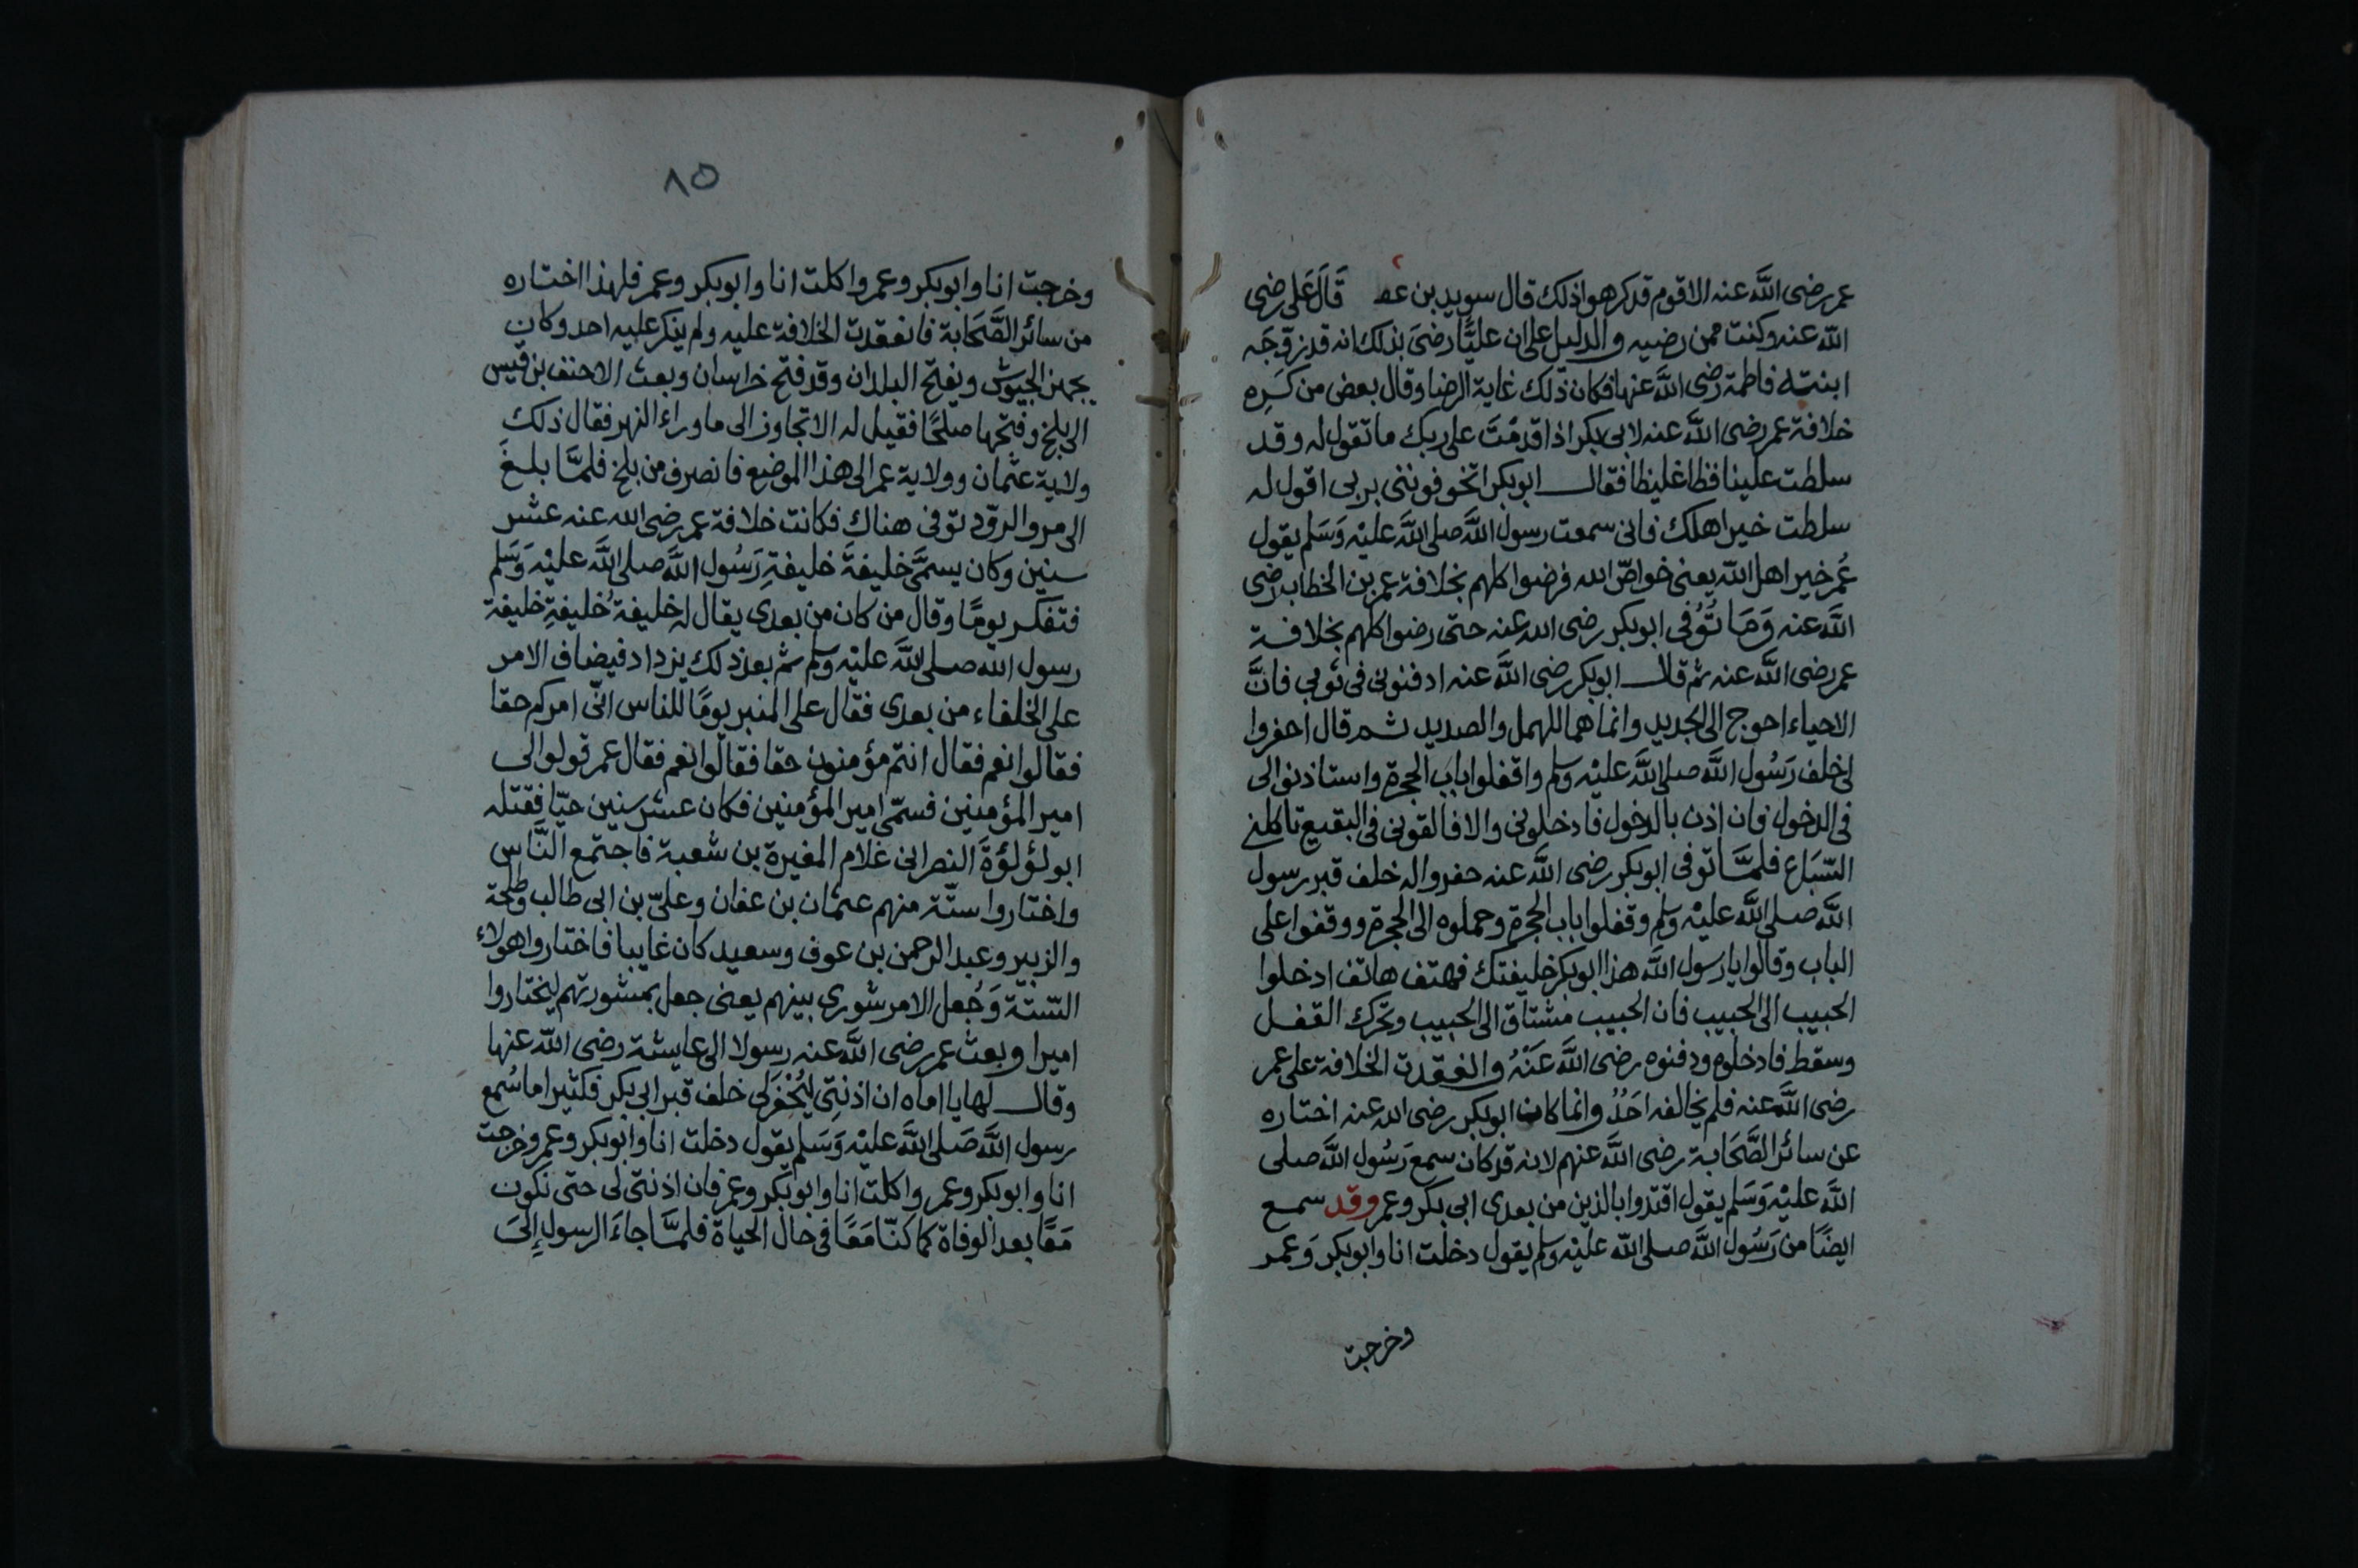 عمر رضى الله عنه الا قوم قد كرهوا ذلك قال سويد بن عط قَالَ عَلى رضى
الله عنه وكنت ممن رضيه والدليل على ان عليًّا رضىَ بذلك انه قد زوّجَه
ابنته فاطمة رضى الله عنها فكان ذلك غاية الرضا وقال بعض من كَرِه
خلافة عمر رضى الله عنه لابى بكر اذا قدمْتَ على ربك ما تقول له وقد
سلطت علينا فظا غليظا فقال ابوبكر اتخوفوننى بربى اقول له
سلطت خير اهلك فانى سمعت رسول الله صلى الله عليْه وَسَلم يقول
عُمر خير اهل الله يعنى خواصّ الله فرضوا كلهم بخلافة عمر بن الخطاب رضى
الله عنه وَمَا تُوُفى ابوبكر رضى الله عنه حتى رضوا كلهم بخلافة
عمر رضى الله عنه ثم قال ابوبكر رضى الله عنه ادفنونى فى ثوبى فانَّ
الاحياء احوج الى الجديد وانما هما للمهل والصديد ثم قال احفروا
لى خلف رَسُول الله صلى الله عليْه وسلم واقفلوا باب الحجرة واستاذنوا لى
فى الدخول فان اذن بالدخول فادخلونى والا فالقونى فى البقيع تاكلنى
السّبَاع فلمَّا توفى ابوبكر رضى الله عنه حفروا له خلف قبر رسول
الله صلى الله عليْه وسلم وقفلوا باب الحجرة وحملوه الى الحجرة ووقفوا على
الباب وقالوا يا رسول الله هذا ابوبكر خليفتك فهتف هاتف ادخلوا
الحبيب الى الحبيب فان الحبيب مشتاق الى الحبيب وتحرك القفل
وسقط فادخلوه ودفنوه رضى الله عَنْهُ وانعقدت الخلافة على عمر
رضى الله عنه فلم يخالفه احَدٌ وانما كان ابوبكر رضى الله عنه اختاره
عن سائر الصَّحَابة رضى الله عنهم لانه قد كان سمع رَسُول الله صلى
الله عليْه وَسَلم يقول اقتدوا بالذين من بعدى ابى بكر وعمر وقد سمع
ايضًا من رَسُول الله صلى الله عليْه وسلم يقول دخلت انا وابوبكر وَعمر
وخرجت
٨٥
وخرجت انا وابوبكر وعمر واكلت انا وابوبكر وعمر فلهذا اختاره
من سائر الصَّحَابة فانعقدت الخلافة عليه ولم ينكر عليه احد وكان
يجهز الجيوش ويفتح البلدان وقد فتح خراسان وبعث الاحنف بن قيس
الى بلخ وفتحها صلحًا فقيل له الا تجاوز الى ما وراء النهر فقال ذلك
ولاية عثمان وولاية عمر الى هذا الموضع فانصرف من بلخ فلمَّا بلغ
الى مرو الروذ توفى هناك فكانت خلافة عمر رضى الله عنه عشر
سنين وكان يسمَّى خليفةَ خليفةِ رَسُول الله صلى الله عليْه وَسَلم
فتفكر يومًا وقال من كان من بعدى يقال له خليفةُ خليفةِ خليفة
رسول الله صلى الله عليْه وسلم ثم بعد ذلك يزداد فيضاف الامر
على الخلفاء من بعدى فقال على المنبر يومًا للناس انّى امركم حقا
فقالوا نعم فقال انتم مؤمنون حقا فقالوا نعم فقال عمر قولوا لى
امير المؤمنين فسمّى امير المؤمنين فكان عشر سنين حيّا فقتله
ابو لؤلؤة النصرانى غلام المغيرة بن شعبة فاجتمع النَّاس
واختاروا ستّة منهم عثمان بن عفان وعلىّ بن ابى طالب وطلحة
والزبير وعبد الرحمن بن عوف وسعيد كان غايبا فاختاروا هولاء
السّتة وَجُعل الامر شورى بينهم يعنى جعل بمشورتهم ليختاروا
اميرا وبعث عمر رضى الله عنه رسولا الى عايشة رضى الله عنها
وقال لها يا اماه ان اذنتِى ليُحْفَر لى خلف قبر ابى بكر فكثيرا ما سُمع
رسول الله صَلى الله عليْه وَسَلم يقول دخلت انا وابوبكر وعمر وخرجت
انا وابوبكر وعمر واكلت انا وابوبكر وعمر فان اذنتى لى حتى نكون
مَعًا بعد الوفاة كما كنّا مَعًا فى حال الحياة فلمَّا جاءَ الرسول إلىَ